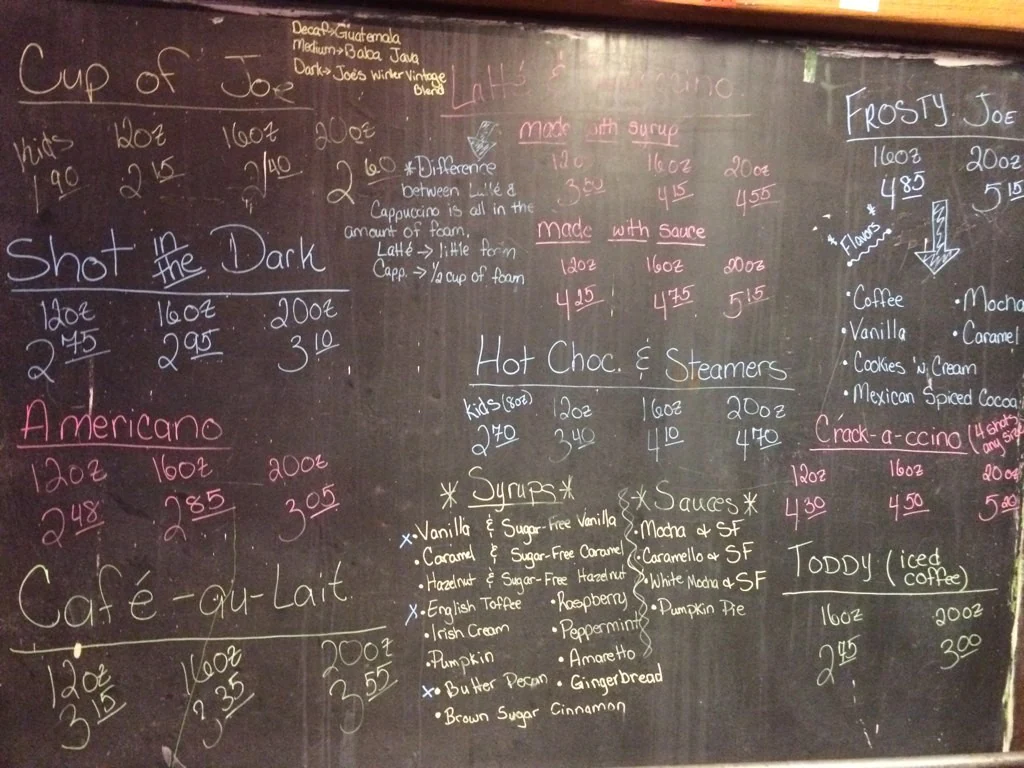 Decaf→Guatemala
Medium→Baba Java
Dark→Joe's Winter Vintage
Blend
Cup of Joe
Kids 12oz 16oz 20oz
1 90 2 15 2 40 2 60
Shot in the Dark
12oz 16oz 20oz
2 75 2 95 3 10
Americano
12oz 16oz 20oz
2 48 2 85 3 05
Café-au-Lait
12oz 16oz 20oz
3 15 3 35 3 55
Latté &
made with syrup
16oz 20oz
4 15 4 55
*Difference
between Latté &
Cappuccino is all in the
amount of foam.
Latté → little foam
Capp. → 1/2 cup of foam
made with sauce
12oz 16oz 20oz
4 25 4 75 5 15
Hot Choc. & Steamers
kids (8oz) 12oz 16oz 20oz
2 70 3 40 4 10 4 70
*Syrups*
x•Vanilla & Sugar-Free Vanilla
•Caramel & Sugar-Free Caramel
•Hazelnut & Sugar-Free Hazelnut
x•English Toffee •Raspberry
•Irish Cream •Peppermint
•Pumpkin •Amaretto
x•Butter Pecan •Gingerbread
•Brown Sugar Cinnamon
*Sauces*
•Mocha & SF
•Caramello & SF
•White Mocha & SF
•Pumpkin Pie
Frosty Joe
16oz 20oz
4 85 5 15
*Flavors*
•Coffee •Mocha
•Vanilla •Caramel
•Cookies 'n Cream
•Mexican Spiced Cocoa
Crack-a-ccino (4 shots
any size
12oz 16oz 20oz
4 30 4 50
Toddy (iced
coffee)
16oz 20oz
2 75 3 00